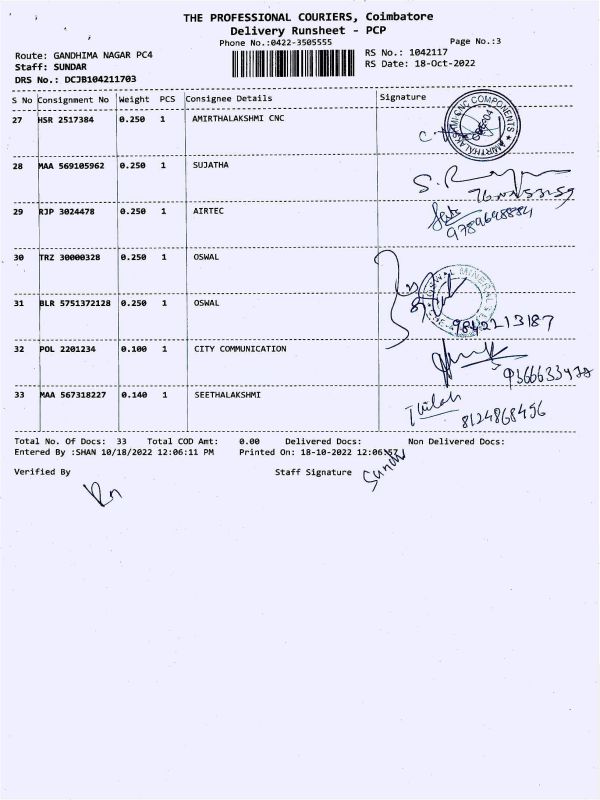 THE PROFESSIONAL COURIERS, Coimbatore
Delivery Runsheet - PCP
Phone No.:0422-3505555 Page No.:3
Route: GANDHIMA NAGAR PC4 RS No.: 1042117
Staff: SUNDAR RS Date: 18-Oct-2022
DRS No.: DCJB104211703
S No Consignment No Weight PCS Consignee Details Signature
27 HSR 2517384 0.250 1 AMIRTHALAKSHMI CNC
AMIRTHALAKSHMI CNC COMPONENTS
28 MAA 569105962 0.250 1 SUJATHA
29 RJP 3024478 0.250 1 AIRTEC
9789698884
30 TRZ 30000328 0.250 1 OSWAL
OSWAL MINERALS
31 BLR 5751372128 0.250 1 OSWAL
9842213187
32 POL 2201234 0.100 1 CITY COMMUNICATION
33 MAA 567318227 0.140 1 SEETHALAKSHMI
8124868456
Total No. Of Docs: 33 Total COD Amt: 0.00 Delivered Docs: Non Delivered Docs:
Entered By :SHAN 10/18/2022 12:06:11 PM Printed On: 18-10-2022 12:06:57
Verified By Staff Signature Sundar